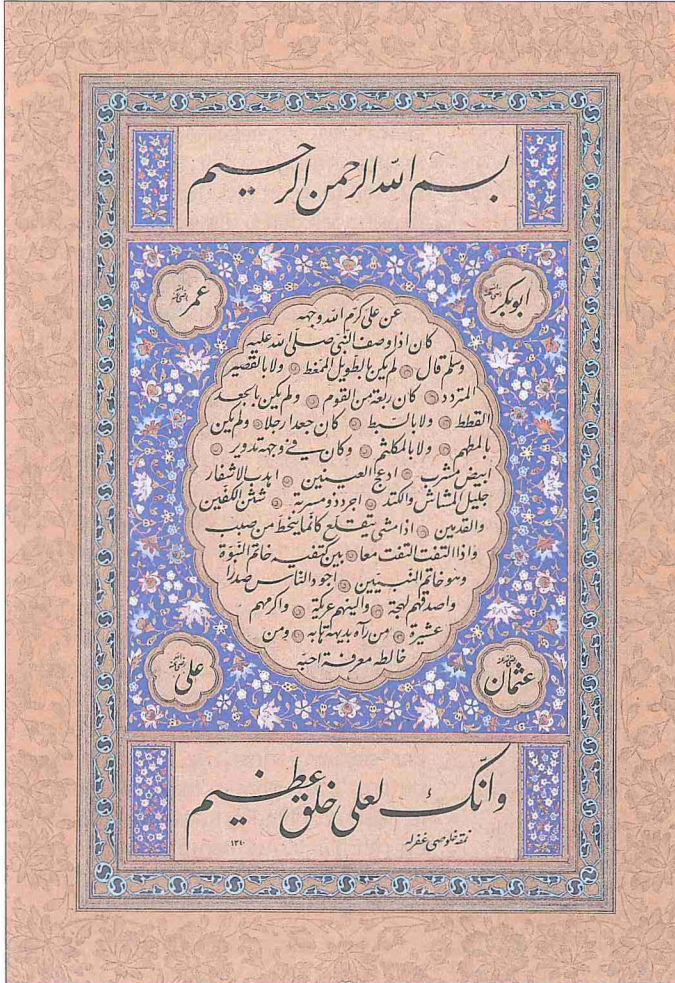 بسم الله الرحمن الرحيم
ابوبكر رضي الله عنه
عمر رضي الله عنه
عن علي كرم الله وجهه
كان اذا وصف النبي صلى الله عليه
وسلم قال لم يكن بالطويل الممغط ولا بالقصير
المتردد كان ربعة من القوم ولم يكن بالجعد
القطط ولا بالسبط كان جعدا رجلا ولم يكن
بالمطهم ولا بالمكلثم وكان في وجهه تدوير
ابيض مشرب ادعج العينين اهدب الاشفار
جليل المشاش والكتد اجرد ذو مسربة شثن الكفين
والقدمين اذا مشى يتقلع كانما ينحط من صبب
واذا التفت التفت معا بين كتفيه خاتم النبوة
وهو خاتم النبيين اجود الناس صدرا
واصدقهم لهجة والينهم عريكة واكرمهم
عشيرة من رآه بديهة هابه ومن
خالطه معرفة احبه
عثمان رضي الله عنه
علي رضي الله عنه
وانك لعلى خلق عظيم
نمقه خلوصي غفر له
١٣٤٠